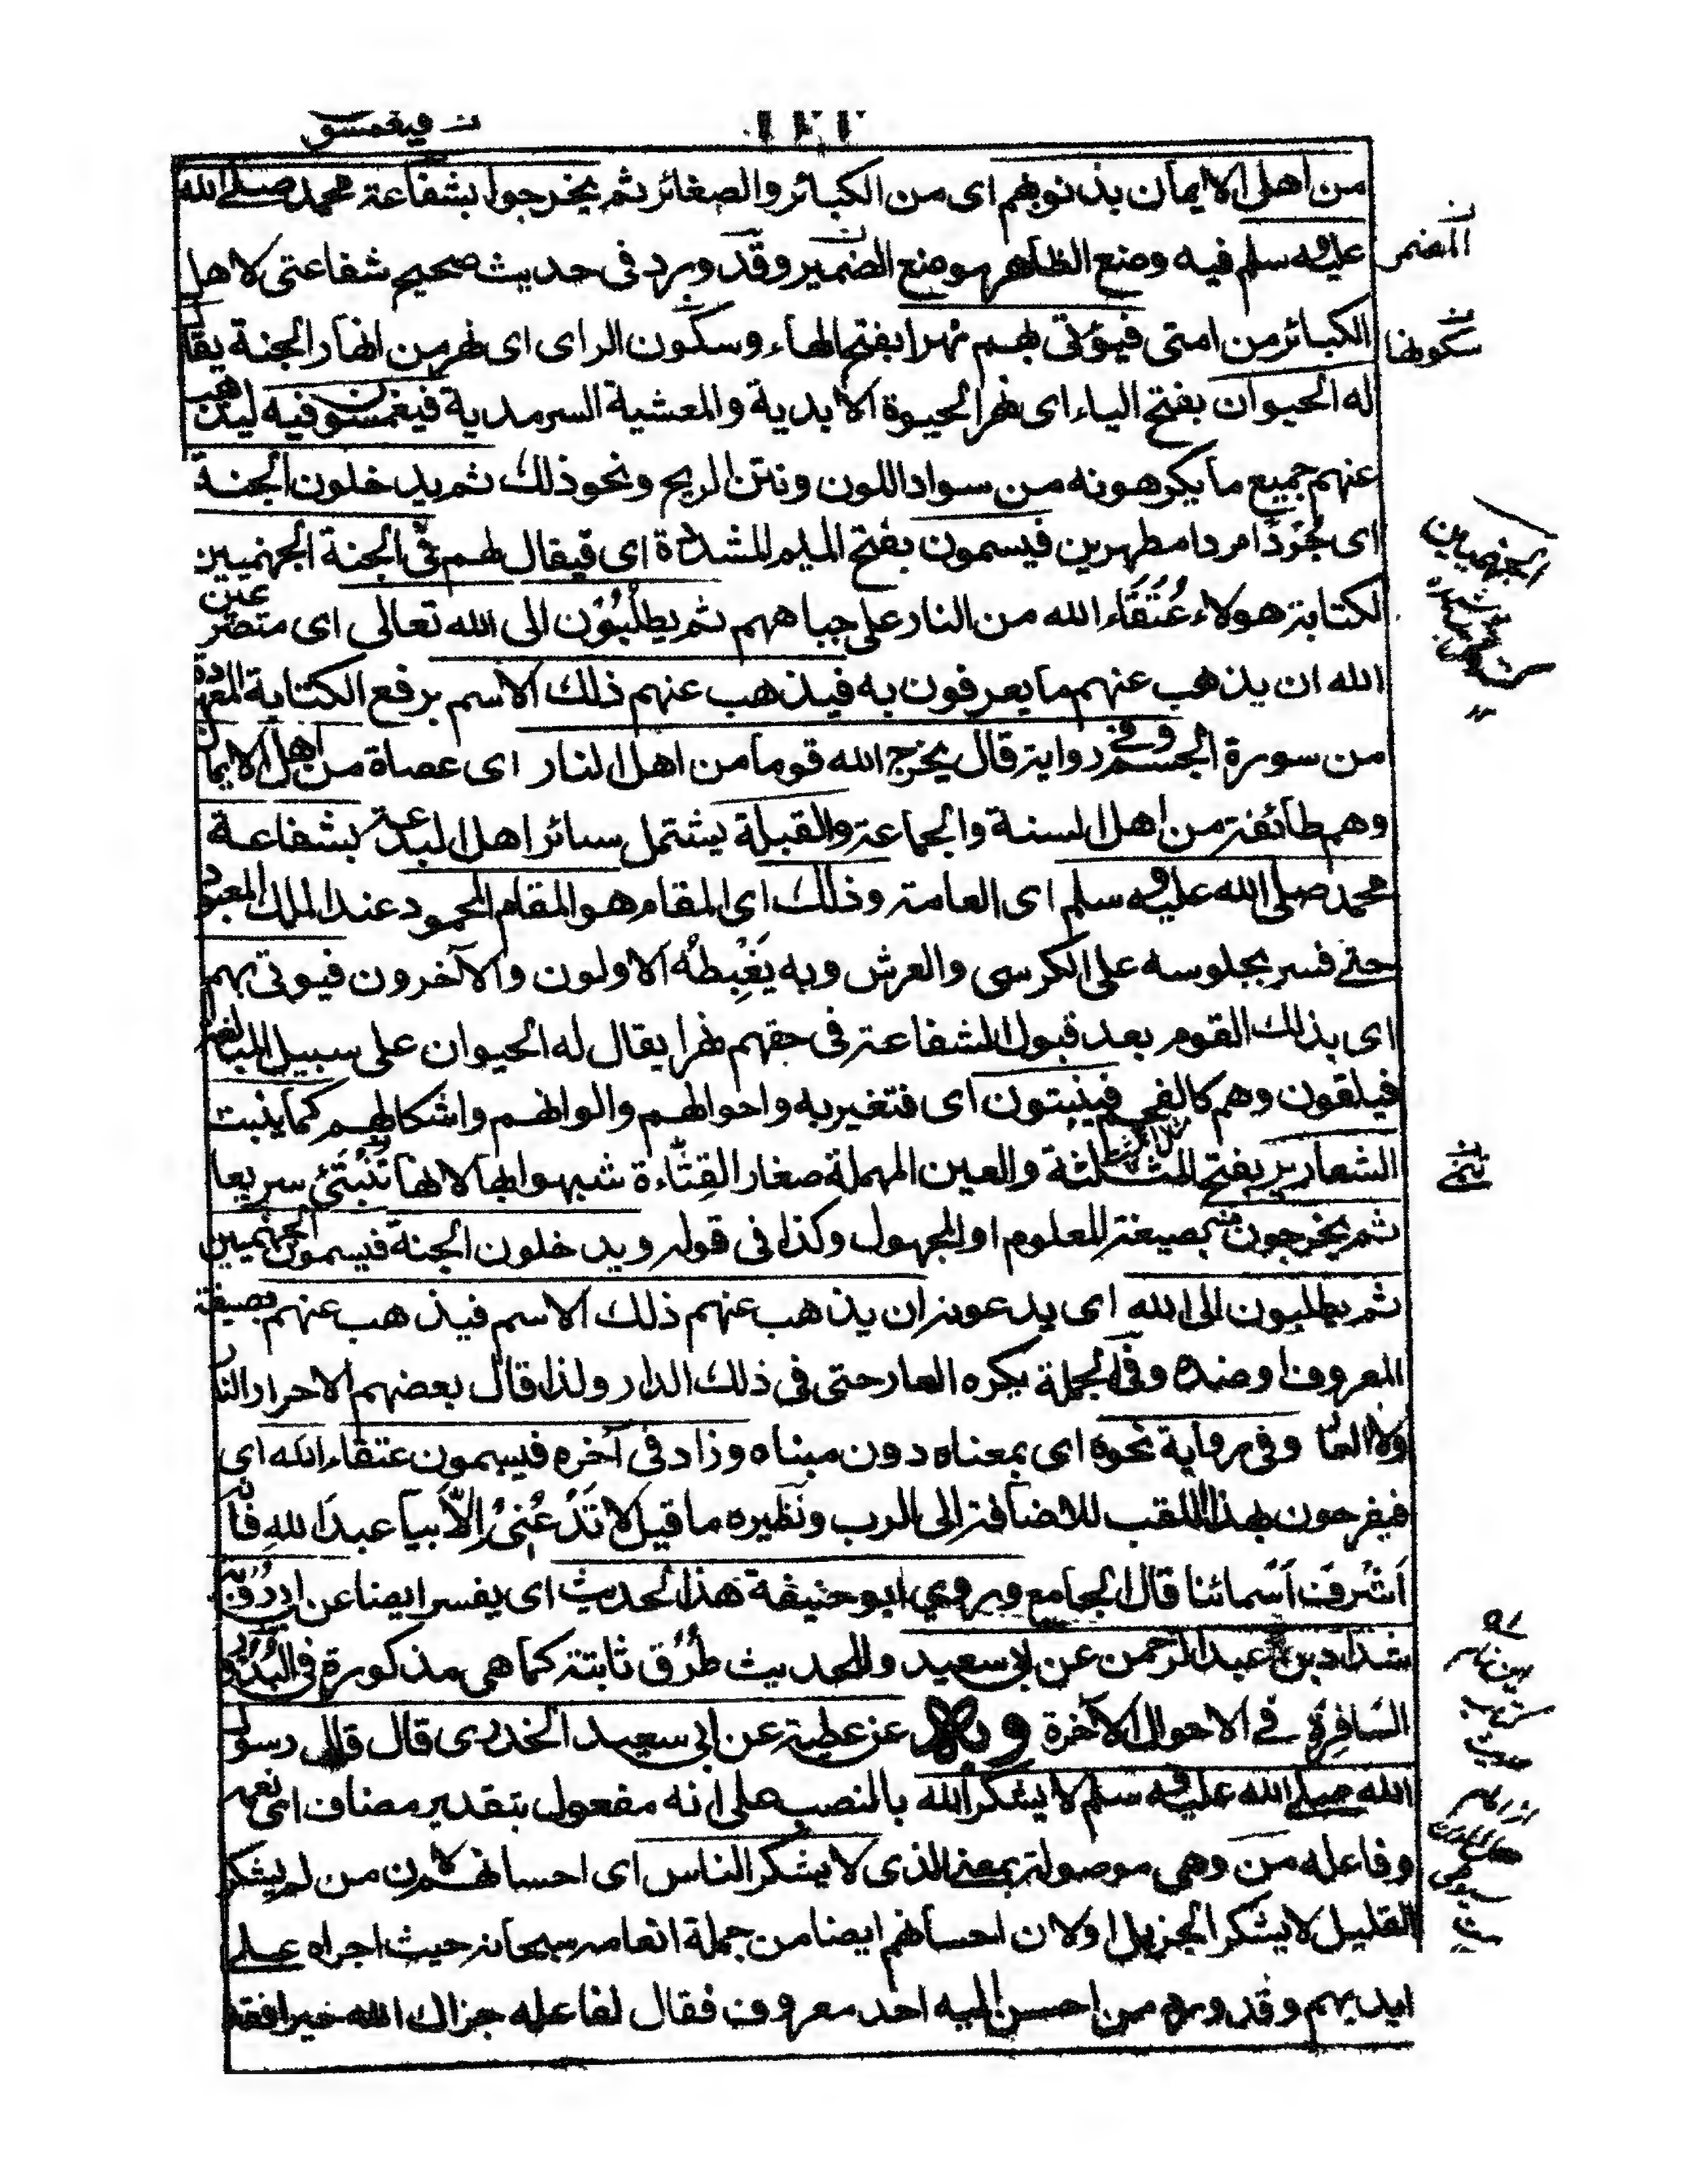 ن فيغمسون
من اهل الايمان بذنوبهم اى من الكبائر والصغائر ثم يخرجوا بشفاعة محمد صلى الله
عليه وسلم فيه وضع الظاهر موضع الضمير وقد ورد فى حديث صحيح شفاعتى لاهل
المضمر
الكبائر من امتى فيؤتى بهم نهرا بفتح الهاء وسكون الراى اى نهر من انهار الجنة يقال
سكونها
له الحيوان بفتح الياء اى نهر الحيوة الابدية والمعشية السرمدية فيغمسو فيه ليذهب
عنهم جميع ما يكرهونه من سواد اللون ونتن الريح ونحو ذلك ثم يدخلون الجنة
اى جُرْدًا مردا مطهرين فيسمون بفتح الميم المشددة اى فيقال لهم فى الجنة الجهنميين
لكتابة هولاء عُتَقَاء الله من النار على جباههم ثم يطلبُوُن الى الله تعالى اى متضرعين
الله ان يذهب عنهم ما يعرفون به فيذهب عنهم ذلك الاسم برفع الكتابة المعهودة
من سورة الجسم وفى رواية قال يخرج الله قوما من اهل النار اى عصاة من اهل الايمان
وهم طائفة من اهل السنة والجماعة والقبلة يشتمل سائر اهل البدعة بشفاعة
محمد صلى الله عليه وسلم اى العامة وذلك اى المقام هو المقام المحمود عند الملك المعبود
حتى فسر بجلوسه على الكرسى والعرش وبه يَغْبِطُه الاولون والآخرون فيوتى بهم
اى بذلك القوم بعد قبول الشفاعة فى حقهم نهرا يقال له الحيوان على سبيل المبالغة
فيلقون وهم كالفحم فينبتون اى فتغير به واحوالهم والوانهم واشكالهم كما ينبت
الشعارير بفتح المثلثة والعين المهملة صغار القِثّاءة شبهوا بها لانها تنبتئ سريعا
ثم يخرجون منه بصيغة المعلوم او المجهول وكذا فى قوله ويدخلون الجنة فيسمون الجهنميين
ثم يطلبون الى الله اى يدعونه ان يذهب عنهم ذلك الاسم فيذهب عنهم بصيغة
المعروف او ضده وفى الجملة يكره العار حتى فى ذلك الدار ولذا قال بعضهم الاحرار النار
ولا العار وفى رواية نحوه اى بمعناه دون مبناه وزاد فى آخره فيسمون عتقاء الله اى
فيفرحون بهذا اللقب للاضافة الى الرب ونظيره ما قيل لا تَدْعُنِىْ اِلاّ بيا عبدَ اللهِ فانه
اَشْرفُ اَسْمائنا قال الجامع وروى ابو حنيفة هذا الحديث اى يفسر ايضا عن ابى رُوْبَة
شداد بن عبد الرحمن عن ابى سعيد وللحديث طُرُق ثابتة كما هى مذكورة فى البُدُوْر
السَافِرَةِ فى الاحوال الآخرة وبه عن عطية عن ابى سعيد الخدرى قال قال رسول
الله صلى الله عليه وسلم لا يشكر الله بالنصب على انه مفعول بتقدير مضاف اى نعمه
وفاعله من وهى موصولة بمعنى الذى لا يشكر الناس اى احسانهم لان من لم يشكر
القليل لا يشكر الجزيل او لان احسانهم ايضا من جملة انعامه سبحانه حيث اجراه على
ايديهم وقد ورد من احسن اليه احد معروف فقال لفاعله جزاك الله خيرا فقد